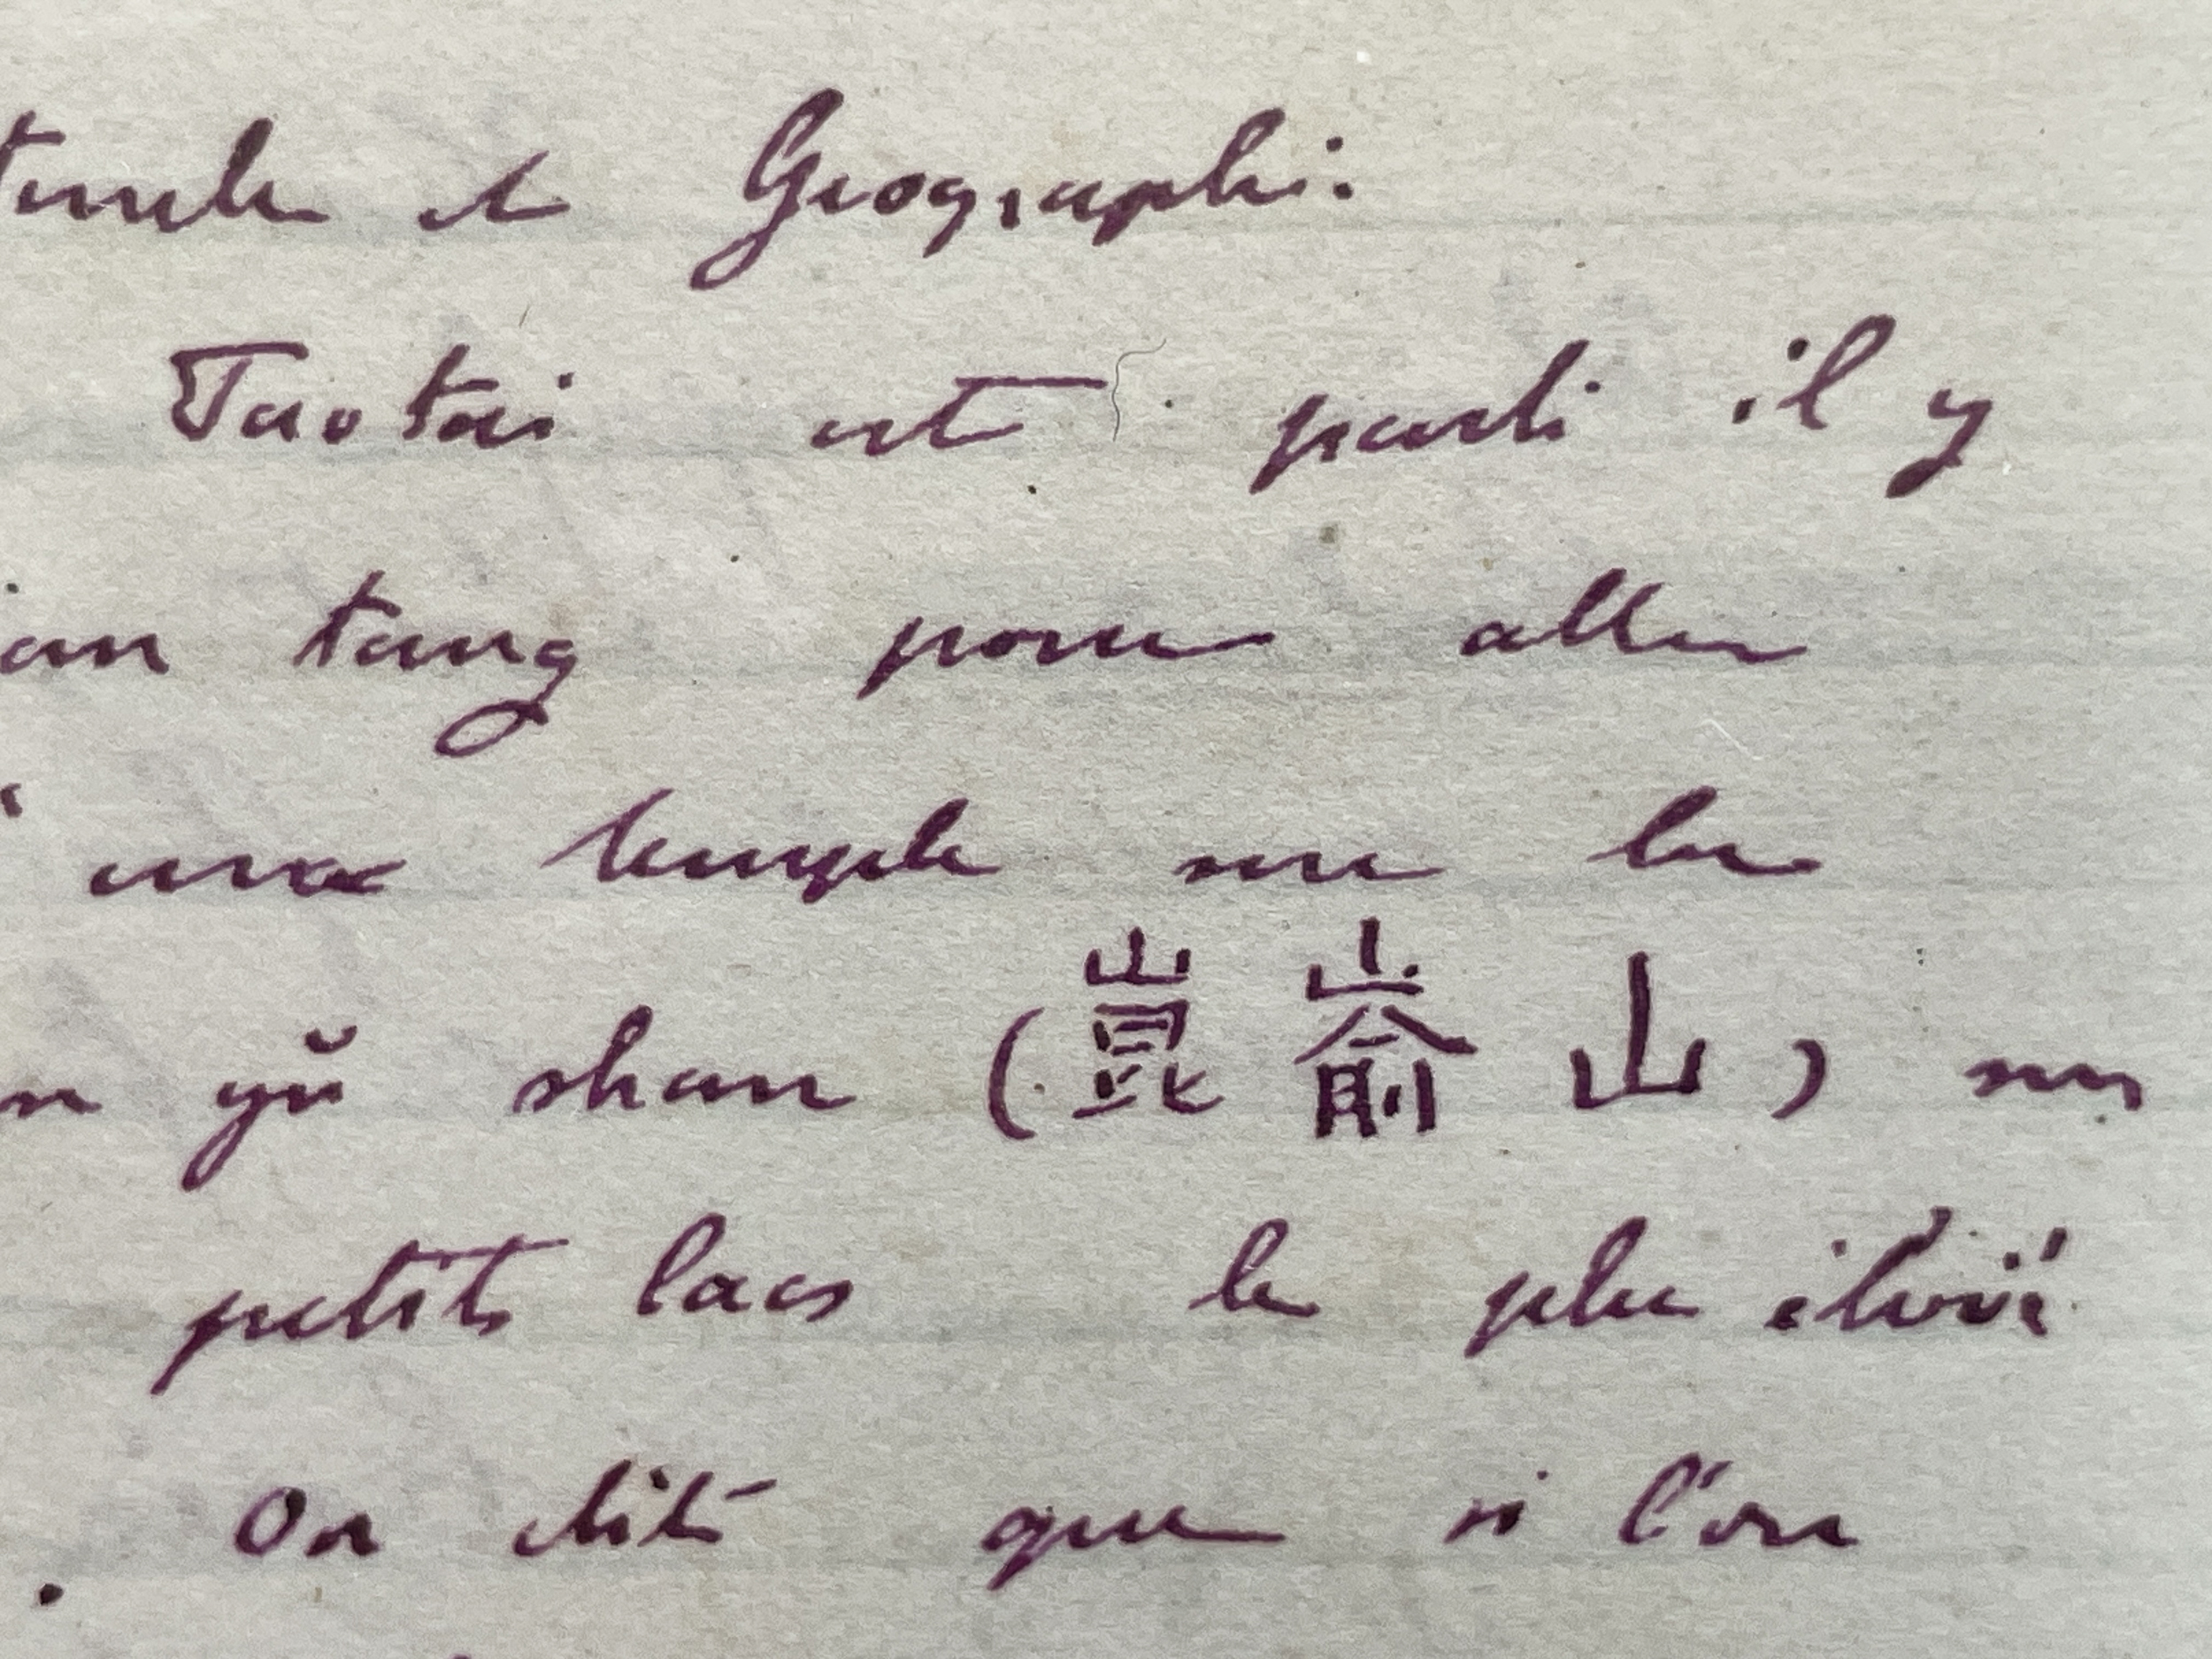 et Geographi:
Taotai est parti il y
an tang pour aller
aux temple sur les
n yŭ shan (崑崳山) ses
petits lacs le plus élevé
On dit que si l'on